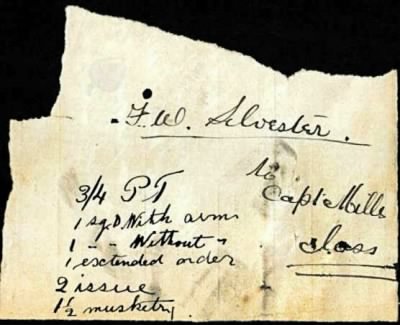 F.W. Silvester.
to
Capt Mills
Class
3/4 PT
1 sqd With arms
1 " " Without "
1 extended order
2 issue
1½ musketry